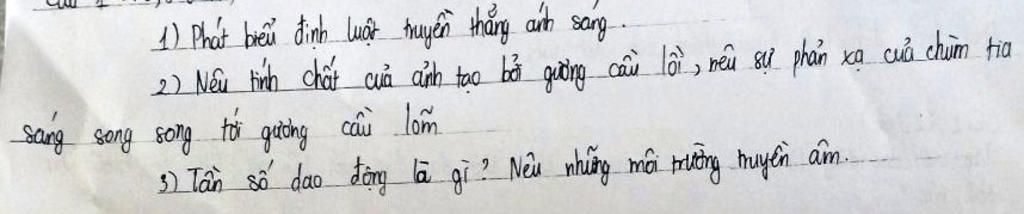 1) Phát biểu định luật truyền thẳng ánh sáng.
2) Nêu tính chất của ảnh tạo bởi gường cầu lồi, nêu sự phản xạ của chùm tia
sáng song song tới gường cầu lõm
3) Tần số dao động là gì? Nêu những môi trường truyền âm.